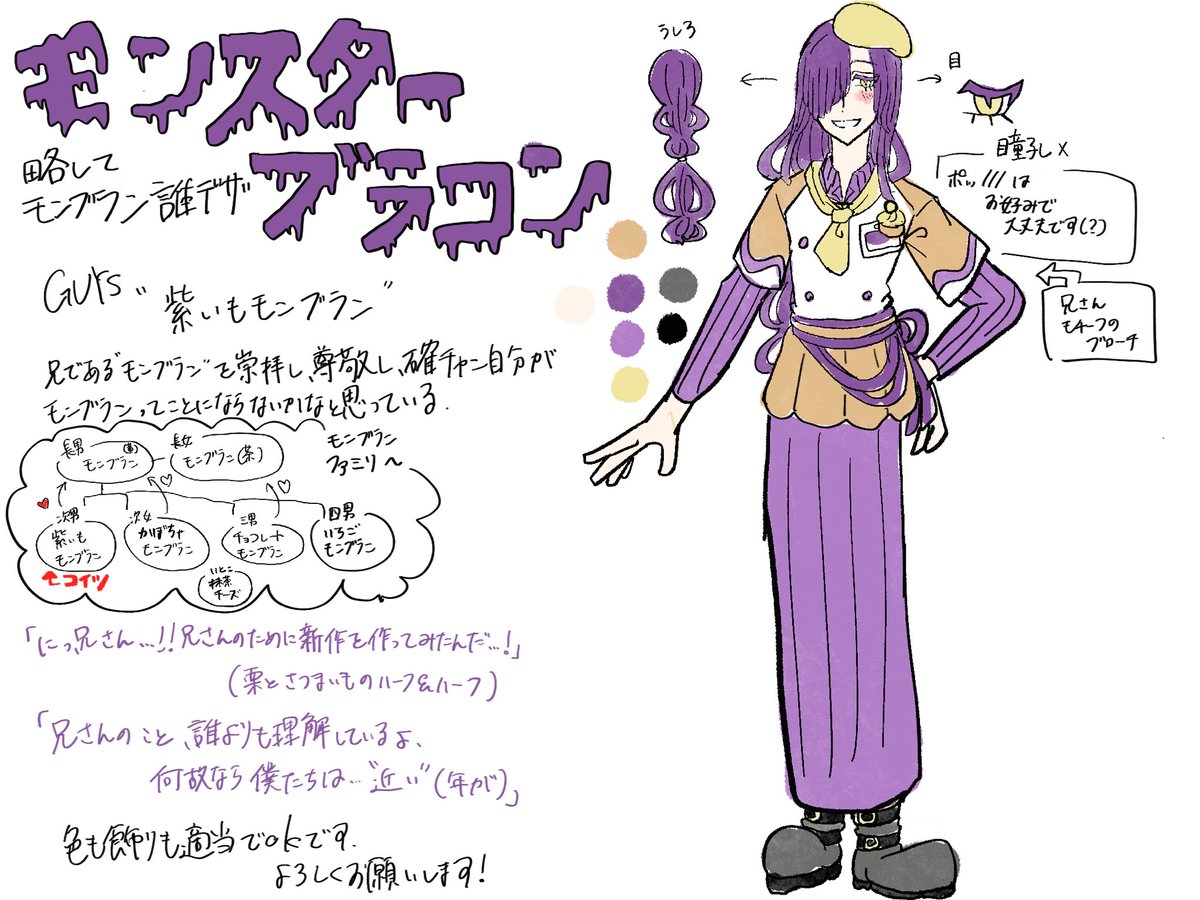 モンスター
ブラコン
略して
モンブラン 誰デザ
GUYS "紫いもモンブラン"
兄である"モンブラン"を崇拝し、尊敬し、確チャン自分が
モンブランってことにならないかなと思っている.
モンブラン
ファミリ〜
長男
モンブラン
長女
モンブラン(茶)
次男
紫いも
モンブラン
次女
かぼちゃ
モンブラン
三男
チョコレート
モンブラン
四男
いちご
モンブラン
いとこ
抹茶
チーズ
↑コイツ
「にっ、兄さん...!!兄さんのために新作を作ってみたんだ...!」
(栗とさつまいものハーフ&ハーフ)
「兄さんのこと、誰よりも理解しているよ、
何故なら僕たちは..."近い"(年が)」
色も飾りも、適当でokです.
よろしくお願いします!
うしろ
目
瞳孔x
ポッ///は
お好みで
大丈夫です(?)
兄さん
モチーフの
ブローチ